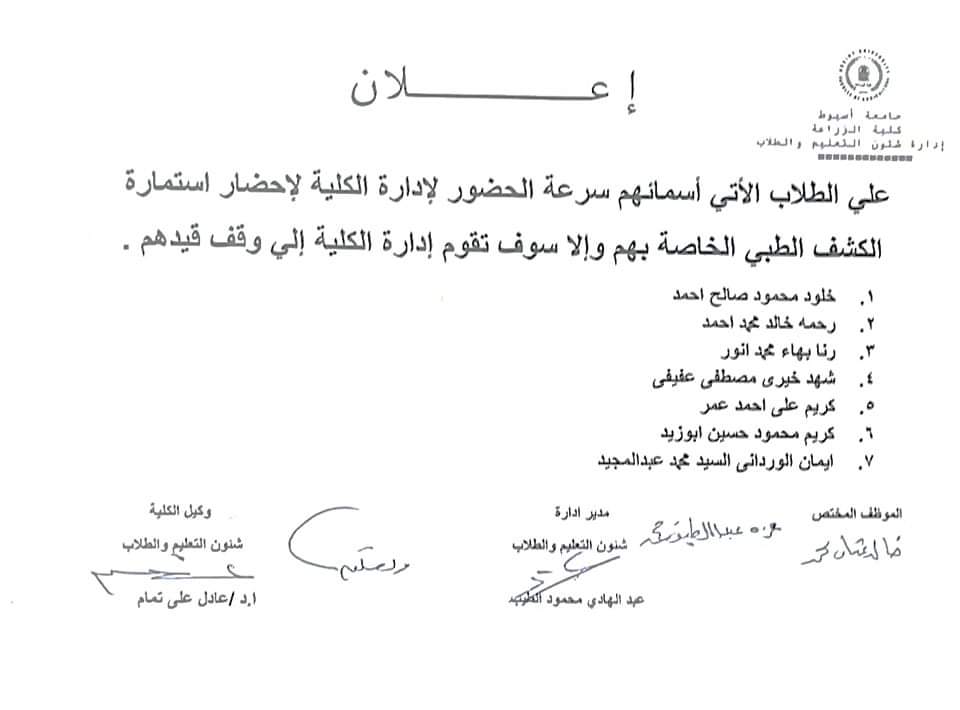 جامعة أسيوط
كلية الزراعة
إدارة شئون التعليم والطلاب
إعـــــــــلان
علي الطلاب الأتي أسمائهم سرعة الحضور لإدارة الكلية لإحضار استمارة
الكشف الطبي الخاصة بهم وإلا سوف تقوم إدارة الكلية إلي وقف قيدهم .
١. خلود محمود صالح احمد
٢. رحمه خالد محمد احمد
٣. رنا بهاء محمد انور
٤. شهد خيرى مصطفى عفيفى
٥. كريم على احمد عمر
٦. كريم محمود حسين ابوزيد
٧. ايمان الوردانى السيد محمد عبدالمجيد
الموظف المختص
مدير ادارة
شئون التعليم والطلاب
عبد الهادي محمود الطيب
وكيل الكلية
شئون التعليم والطلاب
ا.د /عادل على تمام